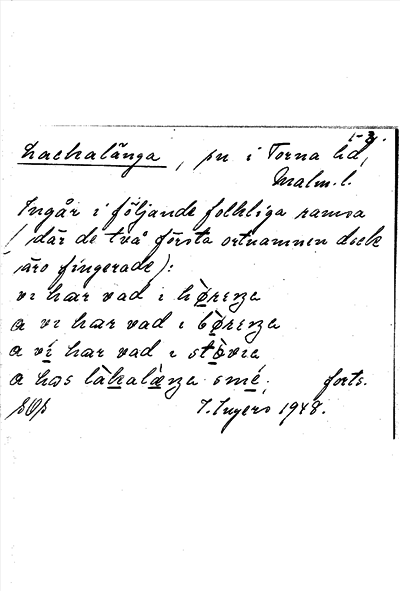 1-2.
Lackalänga, pn i Torna hd,
Malm. l.
Ingår i följande folkliga ramsa
(där de två första ortnamnen dock
äro fingerade):
vi har vad i hø̀renɜe
a vi har vad i bø̀renɜe
a ví har vad i stò̤vie
a hos làkalæ̀nɜa smé, forts.
SOp I. Ingers 1948.